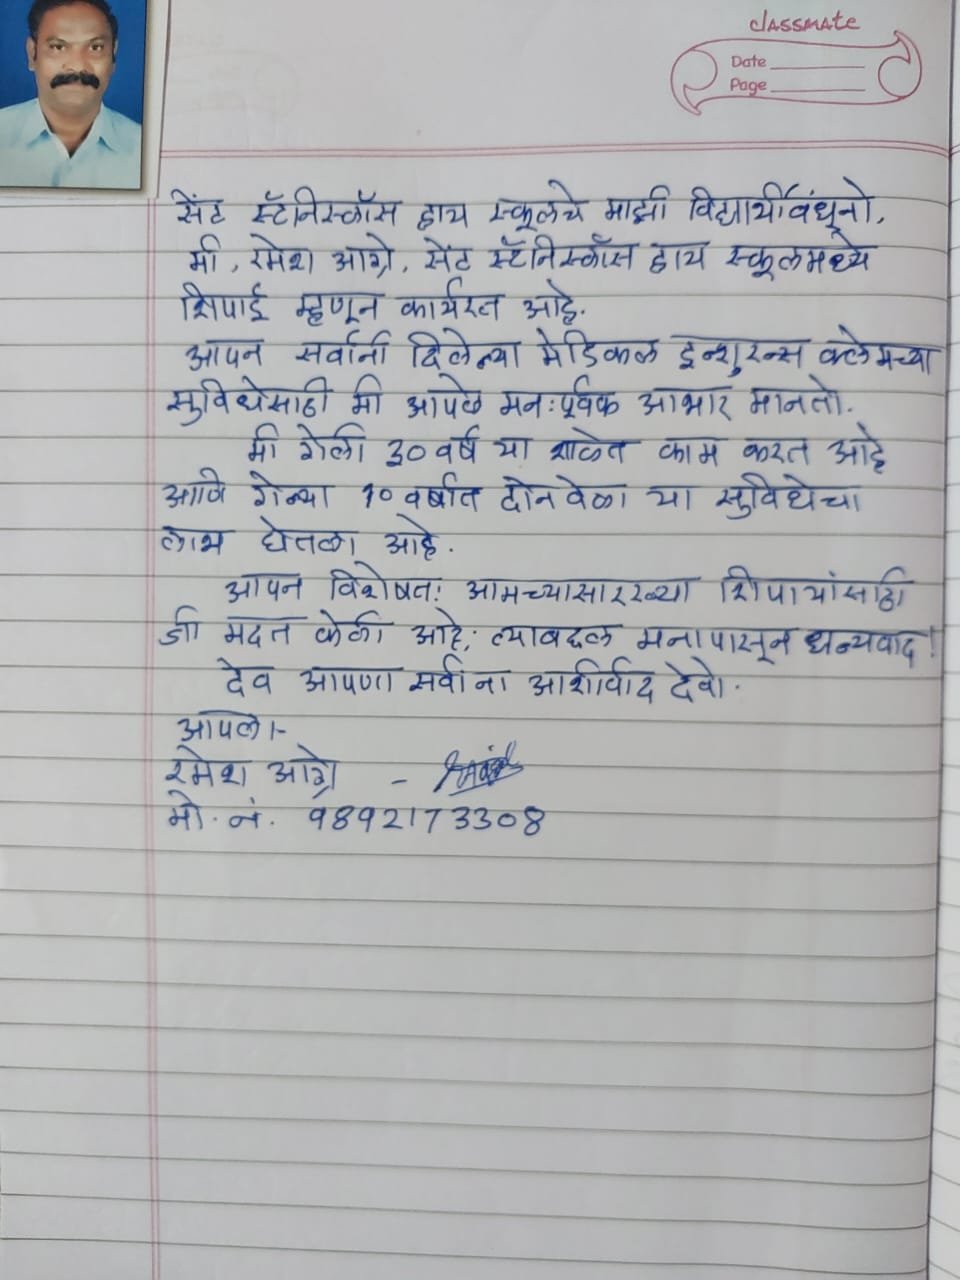 classmate
Date
Page
सेंट स्टॅनिस्लॉस हाय स्कूलचे माझी विद्यार्थीबंधूनो,
मी, रमेश आग्रे, सेंट स्टॅनिस्लॉस हाय स्कूलमध्ये
शिपाई म्हणून कार्यरत आहे.
आपन सर्वांनी दिलेल्या मेडिकल इन्शुरन्स क्लेमच्या
सुविधेसाठी मी आपले मनःपूर्वक आभार मानतो.
मी गेली ३० वर्षे या शाळेत काम करत आहे
आणि गेल्या १० वर्षात दोनवेळा या सुविधेचा
लाभ घेतला आहे.
आपन विशेषतः आमच्यासारख्या शिपायांसाठी
जी मदत केली आहे; त्याबद्दल मनापासून धन्यवाद!
देव आपणा सर्वांना आशीर्वाद देवो.
आपला-
रमेश आग्रे -
मो. नं. 9892173308